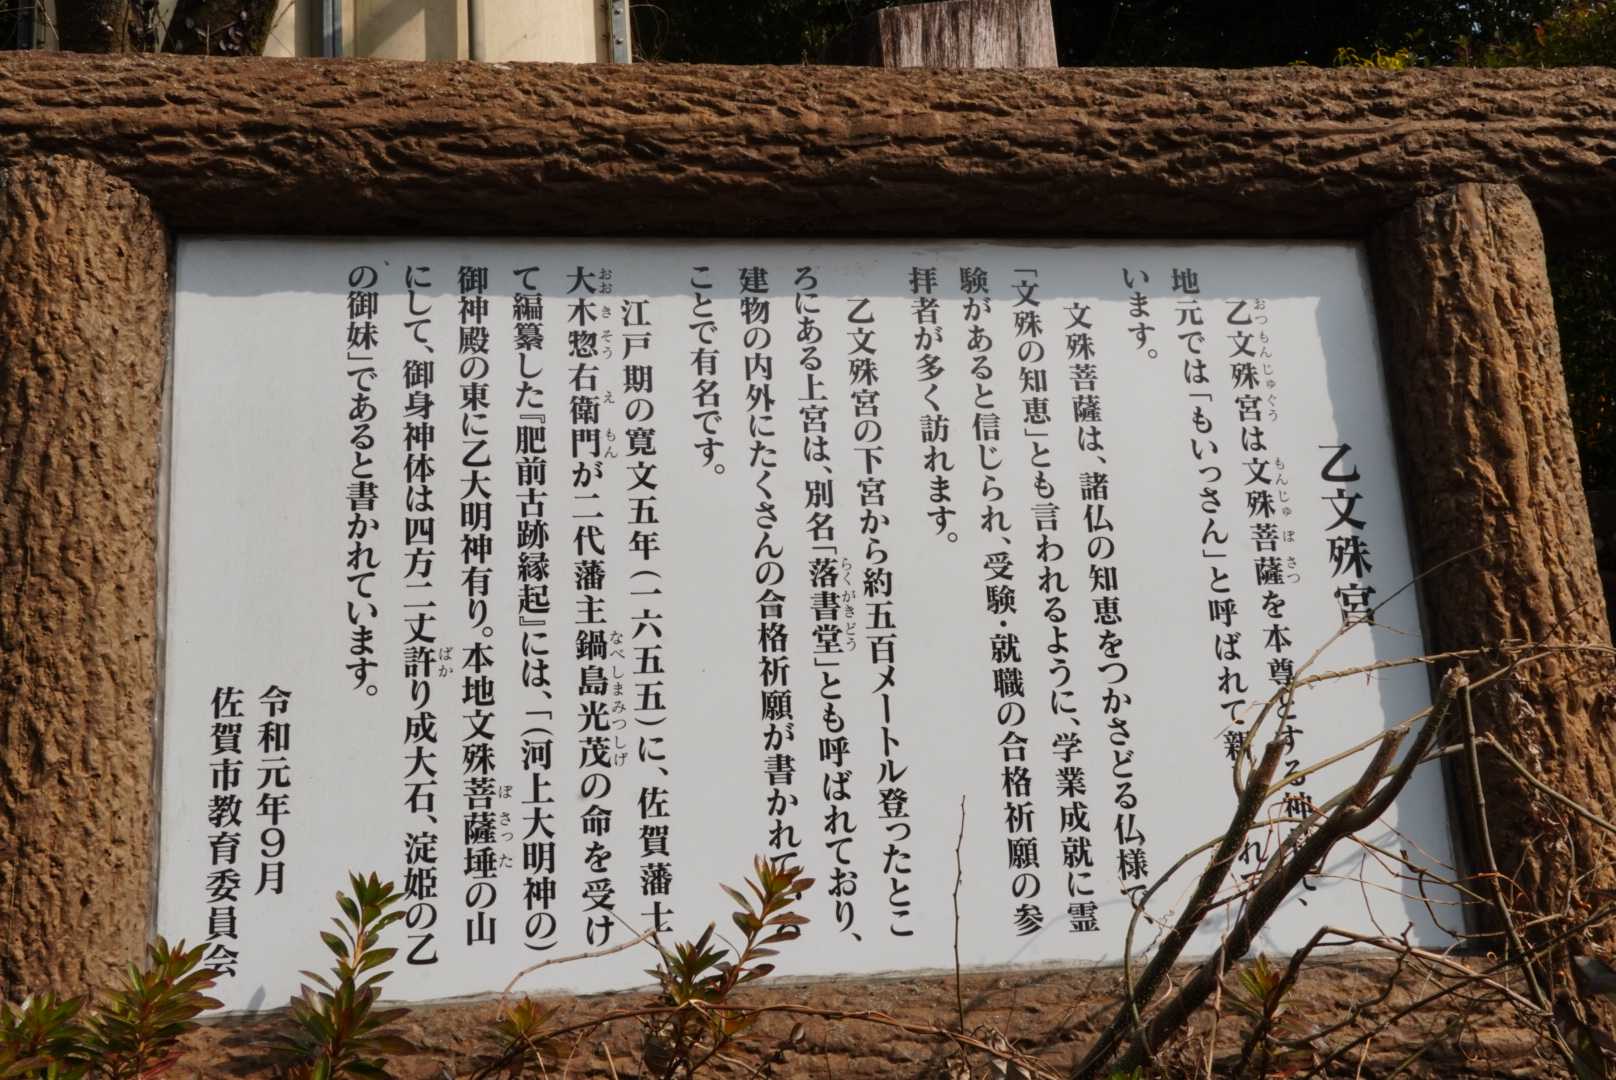 乙文殊宮
おつもんじゅぐう もんじゅ ぼさつ
乙文殊宮は文殊菩薩を本尊とする神て、
地元では「もいっさん」と呼ばれて親れて
います。
文殊菩薩は、諸仏の知恵をつかさどる仏様で
「文殊の知恵」とも言われるように、学業成就に霊
験があると信じられ、受験・就職の合格祈願の参
拝者が多く訪れます。
乙文殊宮の下宮から約五百メートル登ったとこ
らくがきどう
ろにある上宮は、別名「落書堂」とも呼ばれており、
建物の内外にたくさんの合格祈願が書かれている
ことで有名です。
江戸期の寛文五年（一六五五）に、佐賀藩士
おおきそうえもん なべしまみつしげ
大木惣右衛門が二代藩主鍋島光茂の命を受け
て編纂した『肥前古跡縁起』には、「（河上大明神の）
ぼさった
御神殿の東に乙大明神有り。本地文殊菩薩埵の山
ばか
にして、御身神体は四方二丈許り成大石、淀姫の乙
の御妹」であると書かれています。
令和元年9月
佐賀市教育委員会